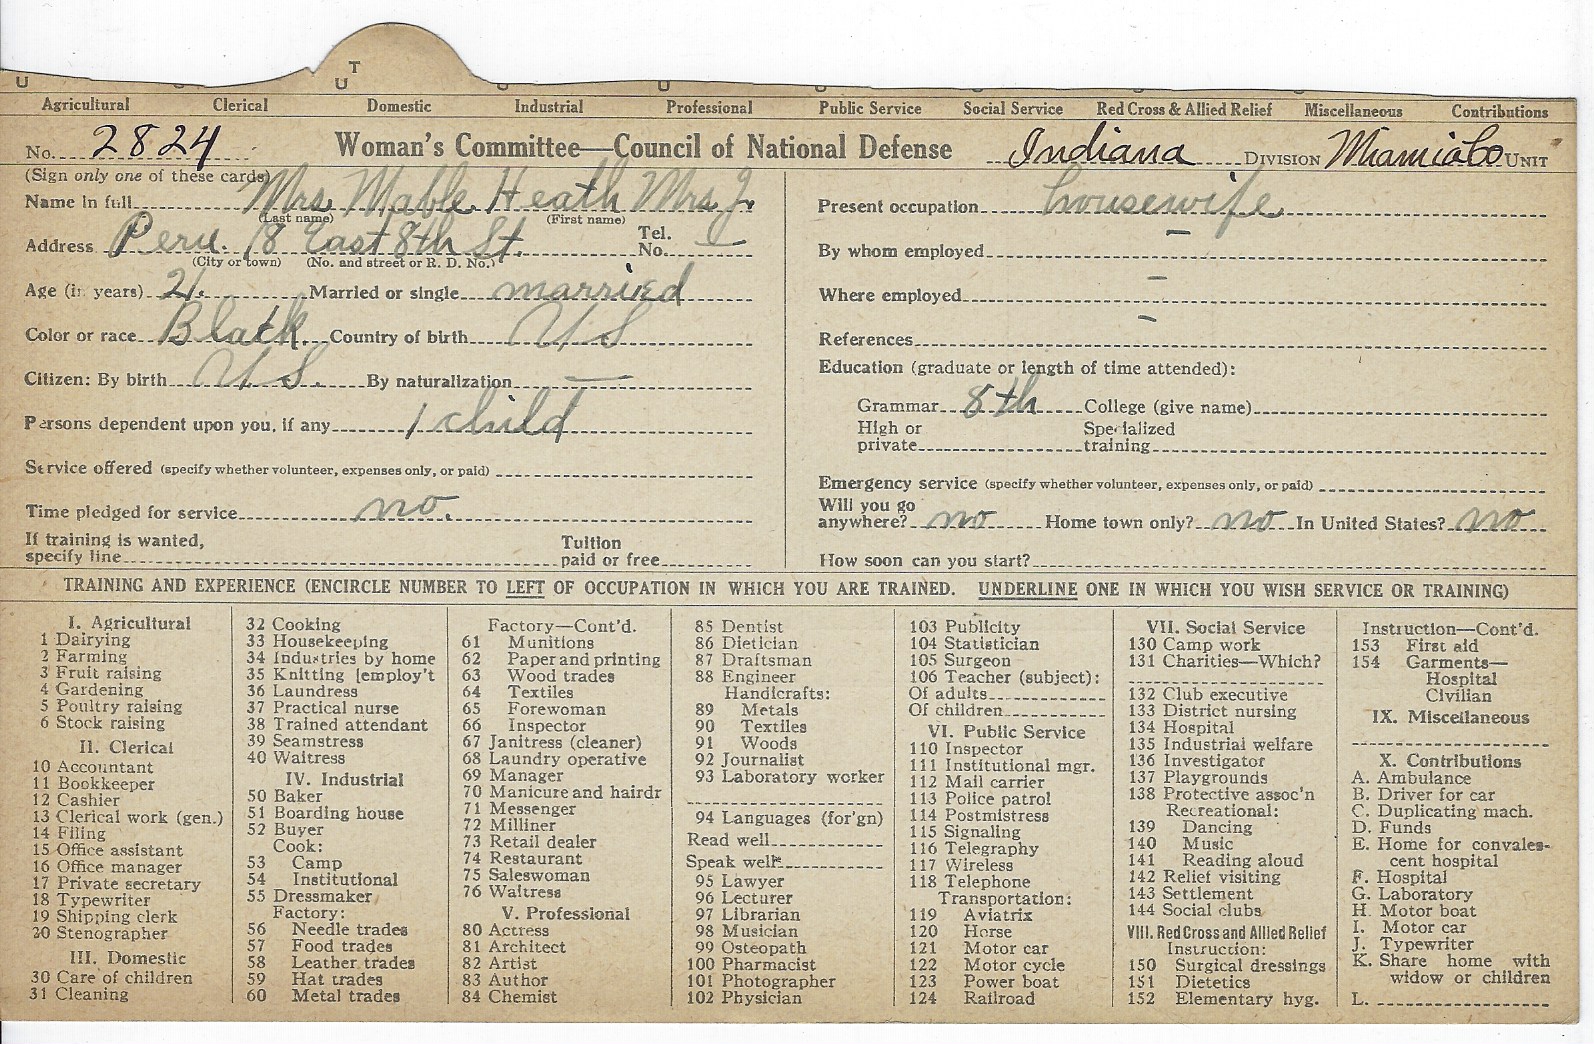 U T U U
Agricultural Clerical Domestic Industrial Professional Public Service Social Service Red Cross & Allied Relief Miscellaneous Contributions
No. 2824 Woman's Committee—Council of National Defense Indiana DIVISION Miami Co UNIT
(Sign only one of these cards)
Name in full Mrs. Mable Heath Mrs J.
(Last name) (First name)
Address Peru. 18 East 8th St. Tel. No. —
(City or town) (No. and street or R. D. No.)
Age (in years) 21. Married or single married
Color or race Black Country of birth U S
Citizen: By birth U S. By naturalization —
Persons dependent upon you, if any 1 child
Service offered (specify whether volunteer, expenses only, or paid)
Time pledged for service no.
If training is wanted,
specify line Tuition paid or free
Present occupation housewife
By whom employed —
Where employed —
References —
Education (graduate or length of time attended):
Grammar 8th College (give name)
High or private Specialized training
Emergency service (specify whether volunteer, expenses only, or paid)
Will you go anywhere? no Home town only? no In United States? no
How soon can you start?
TRAINING AND EXPERIENCE (ENCIRCLE NUMBER TO LEFT OF OCCUPATION IN WHICH YOU ARE TRAINED. UNDERLINE ONE IN WHICH YOU WISH SERVICE OR TRAINING)
I. Agricultural
1 Dairying
2 Farming
3 Fruit raising
4 Gardening
5 Poultry raising
6 Stock raising
II. Clerical
10 Accountant
11 Bookkeeper
12 Cashier
13 Clerical work (gen.)
14 Filing
15 Office assistant
16 Office manager
17 Private secretary
18 Typewriter
19 Shipping clerk
20 Stenographer
III. Domestic
30 Care of children
31 Cleaning
32 Cooking
33 Housekeeping
34 Industries by home
35 Knitting [employ't
36 Laundress
37 Practical nurse
38 Trained attendant
39 Seamstress
40 Waitress
IV. Industrial
50 Baker
51 Boarding house
52 Buyer
Cook:
53 Camp
54 Institutional
55 Dressmaker
Factory:
56 Needle trades
57 Food trades
58 Leather trades
59 Hat trades
60 Metal trades
Factory—Cont'd.
61 Munitions
62 Paper and printing
63 Wood trades
64 Textiles
65 Forewoman
66 Inspector
67 Janitress (cleaner)
68 Laundry operative
69 Manager
70 Manicure and hairdr
71 Messenger
72 Milliner
73 Retail dealer
74 Restaurant
75 Saleswoman
76 Waitress
V. Professional
80 Actress
81 Architect
82 Artist
83 Author
84 Chemist
85 Dentist
86 Dietician
87 Draftsman
88 Engineer
Handicrafts:
89 Metals
90 Textiles
91 Woods
92 Journalist
93 Laboratory worker
94 Languages (for'gn)
Read well
Speak well
95 Lawyer
96 Lecturer
97 Librarian
98 Musician
99 Osteopath
100 Pharmacist
101 Photographer
102 Physician
103 Publicity
104 Statistician
105 Surgeon
106 Teacher (subject):
Of adults
Of children
VI. Public Service
110 Inspector
111 Institutional mgr.
112 Mail carrier
113 Police patrol
114 Postmistress
115 Signaling
116 Telegraphy
117 Wireless
118 Telephone
Transportation:
119 Aviatrix
120 Horse
121 Motor car
122 Motor cycle
123 Power boat
124 Railroad
VII. Social Service
130 Camp work
131 Charities—Which?
132 Club executive
133 District nursing
134 Hospital
135 Industrial welfare
136 Investigator
137 Playgrounds
138 Protective assoc'n
Recreational:
139 Dancing
140 Music
141 Reading aloud
142 Relief visiting
143 Settlement
144 Social clubs
VIII. Red Cross and Allied Relief
Instruction:
150 Surgical dressings
151 Dietetics
152 Elementary hyg.
Instruction—Cont'd.
153 First aid
154 Garments—
Hospital
Civilian
IX. Miscellaneous
X. Contributions
A. Ambulance
B. Driver for car
C. Duplicating mach.
D. Funds
E. Home for convales-
cent hospital
F. Hospital
G. Laboratory
H. Motor boat
I. Motor car
J. Typewriter
K. Share home with
widow or children
L.